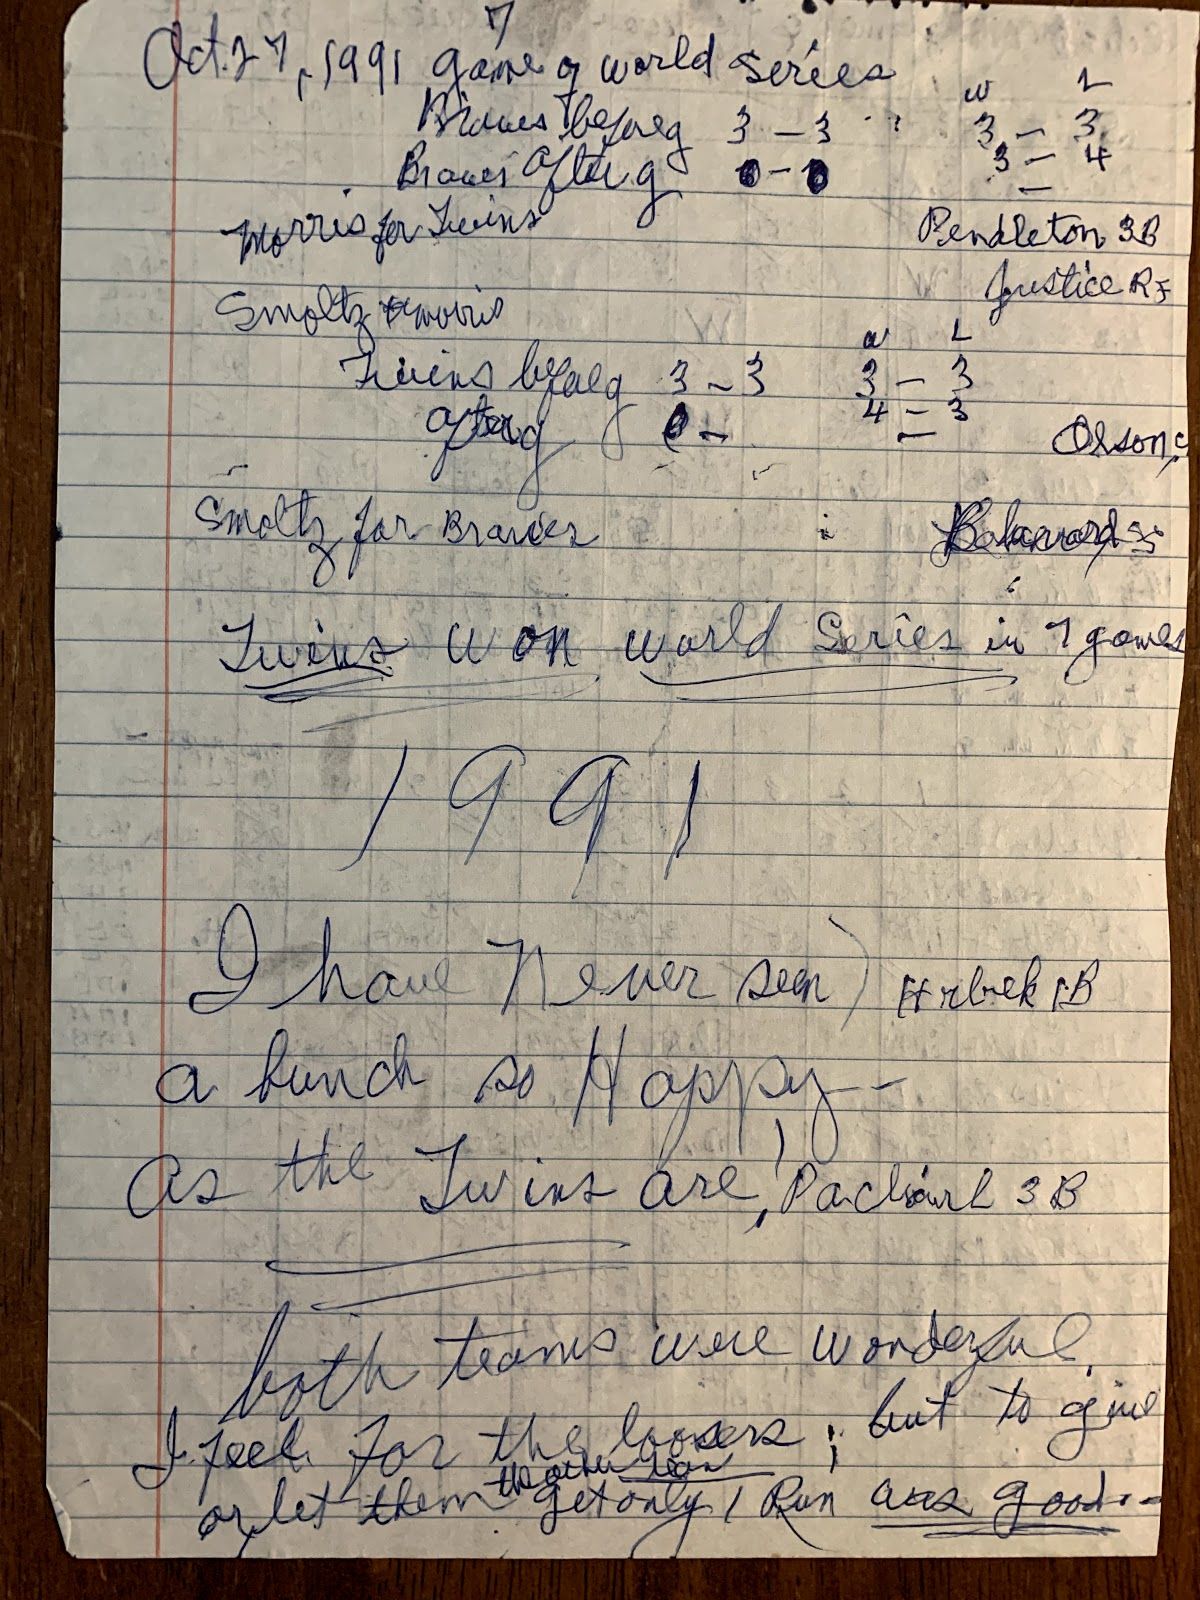 7
Oct. 27, 1991 Game of World Series
W L
Braves before g 3 - 3 3 - 3
Braves After g 0 - 0 3 - 4
Morris for Twins Pendleton 3B
Justice RF
Smoltz Morris
W L
Twins before g 3 - 3 3 - 3
After g 0 - 4 - 3
Olson, c
Smoltz for Braves SS
Twins won World Series in 7 games
1991
I have Never seen) Hrbek 1B
a bunch so Happy --
as the Twins are, Pacliarl 3B
both teams were wonderful.
I feel for the loosers; but to give
the other team
or let them get only 1 Run was good --